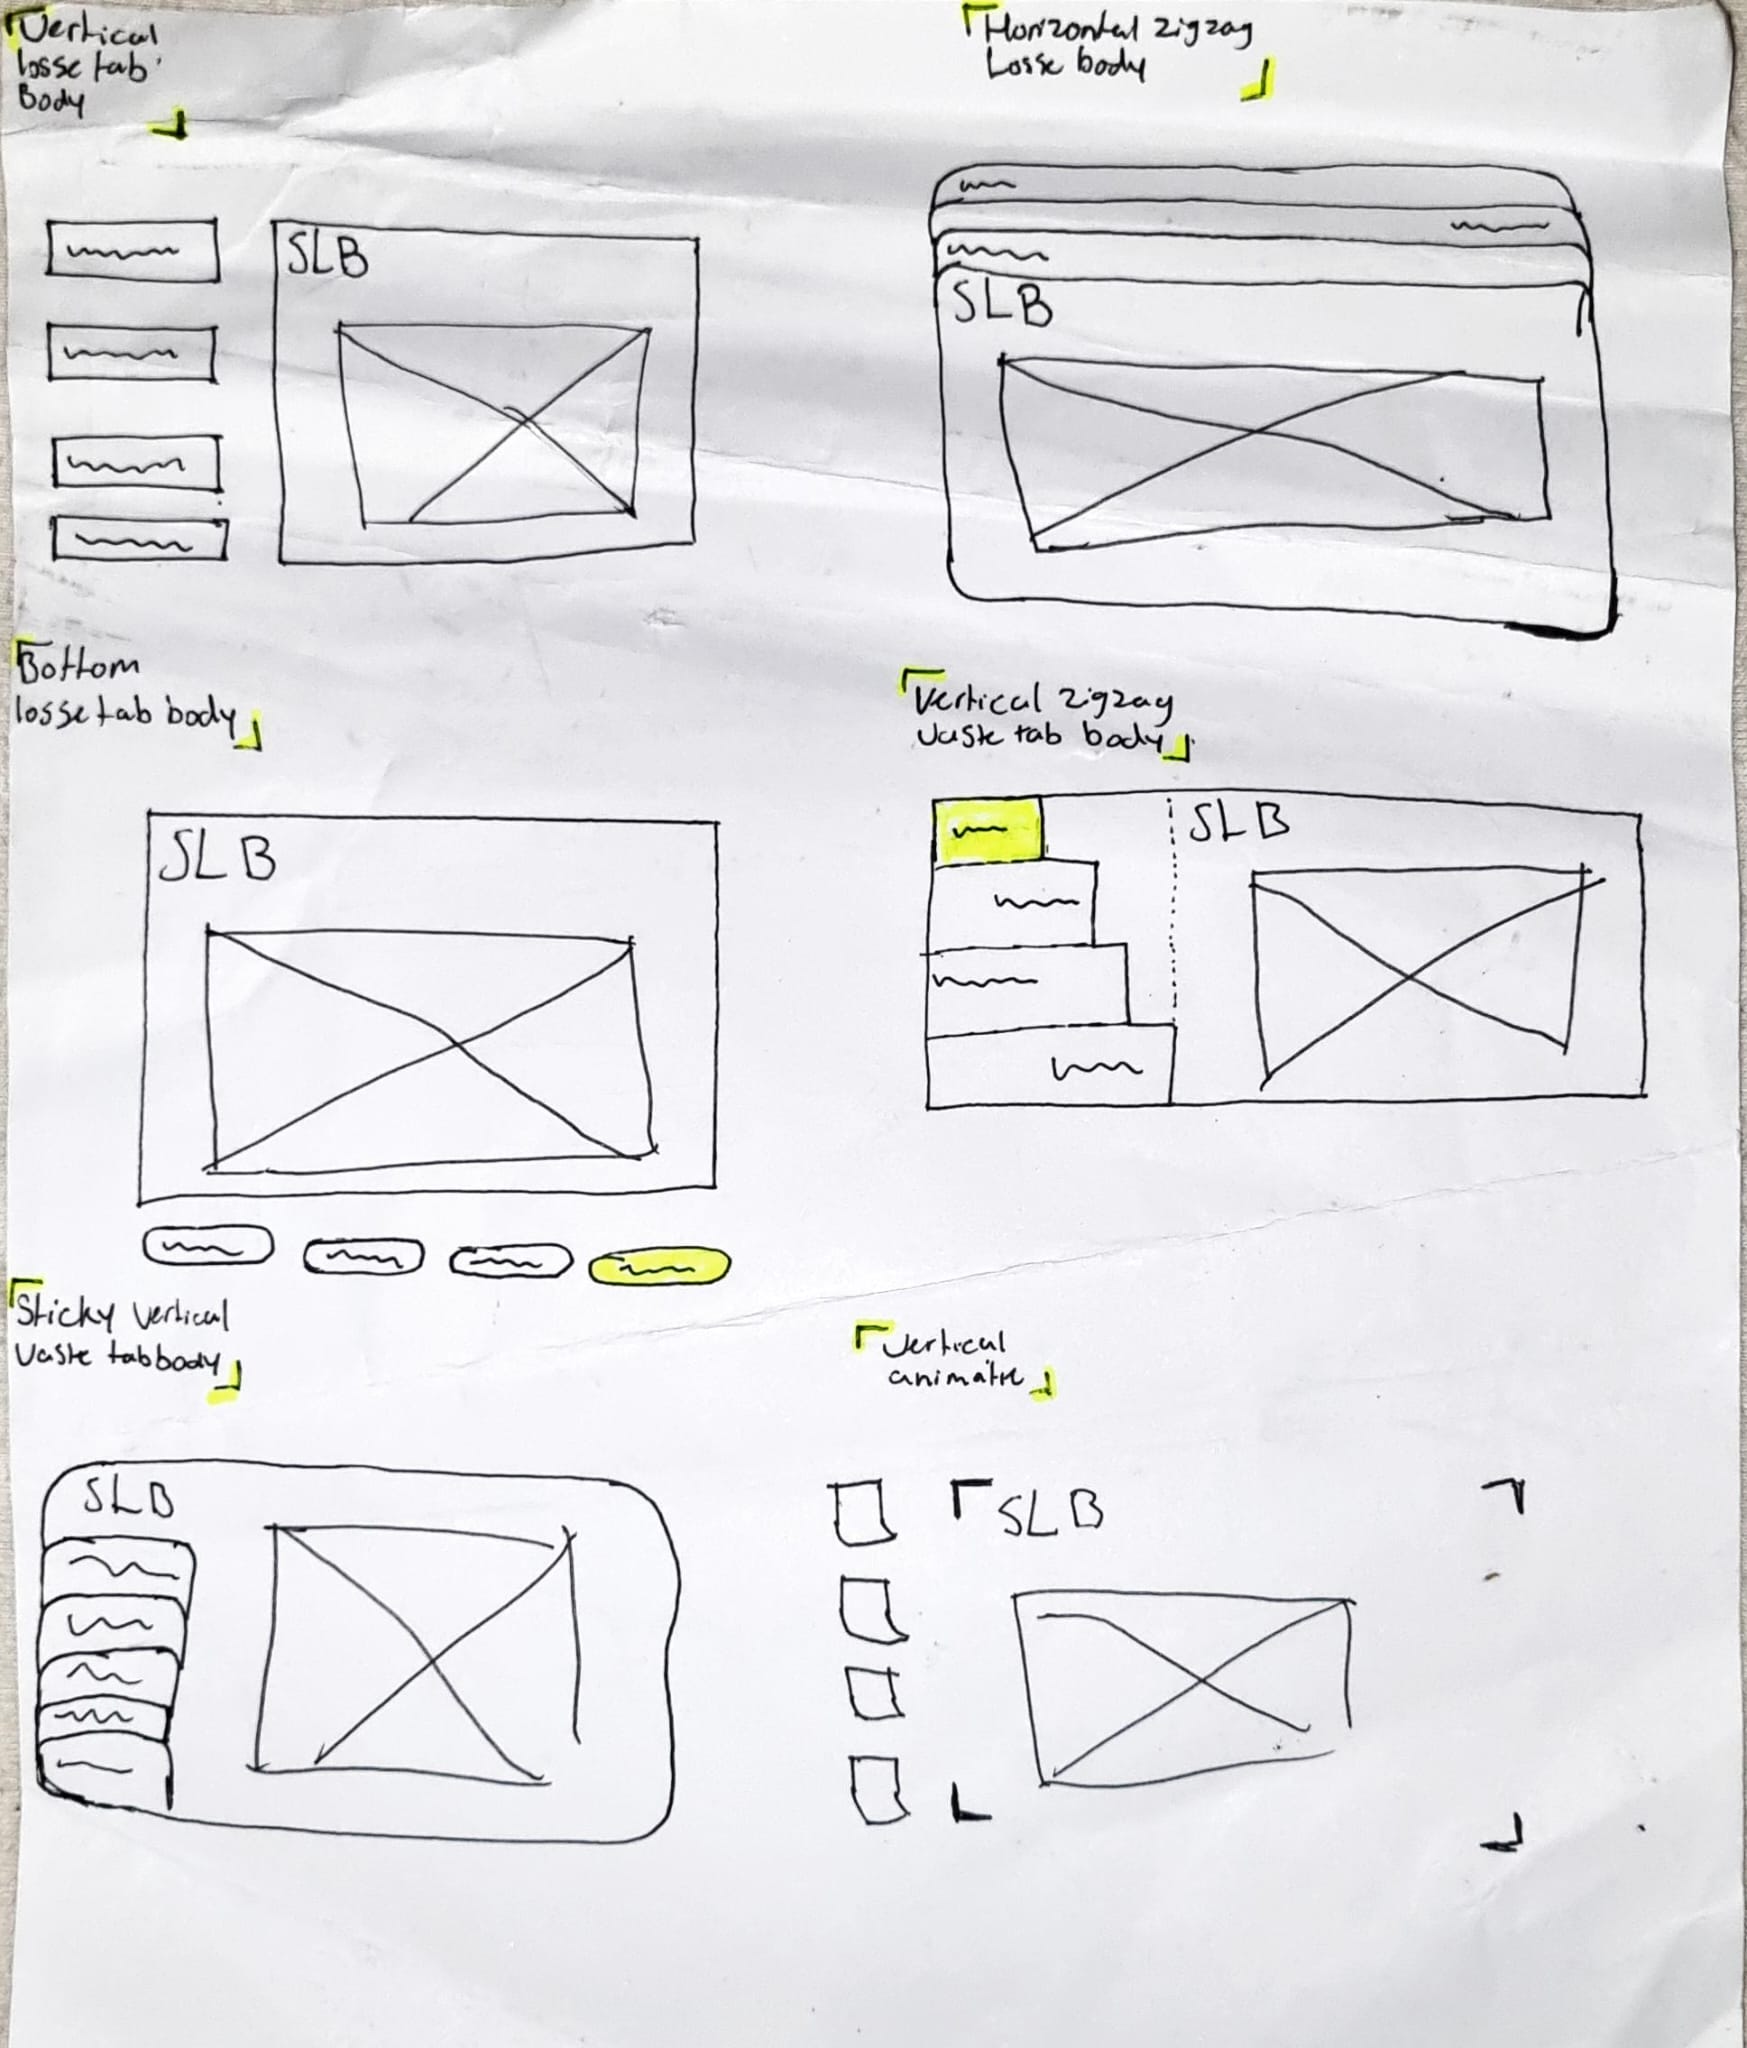 Vertical
losse tab
Body
SLB
Horizontal zigzag
Losse body
SLB
Bottom
losse tab body
SLB
Vertical zigzag
vaste tab body
SLB
Sticky vertical
vaste tabbody
SLB
Vertical
animatie
SLB